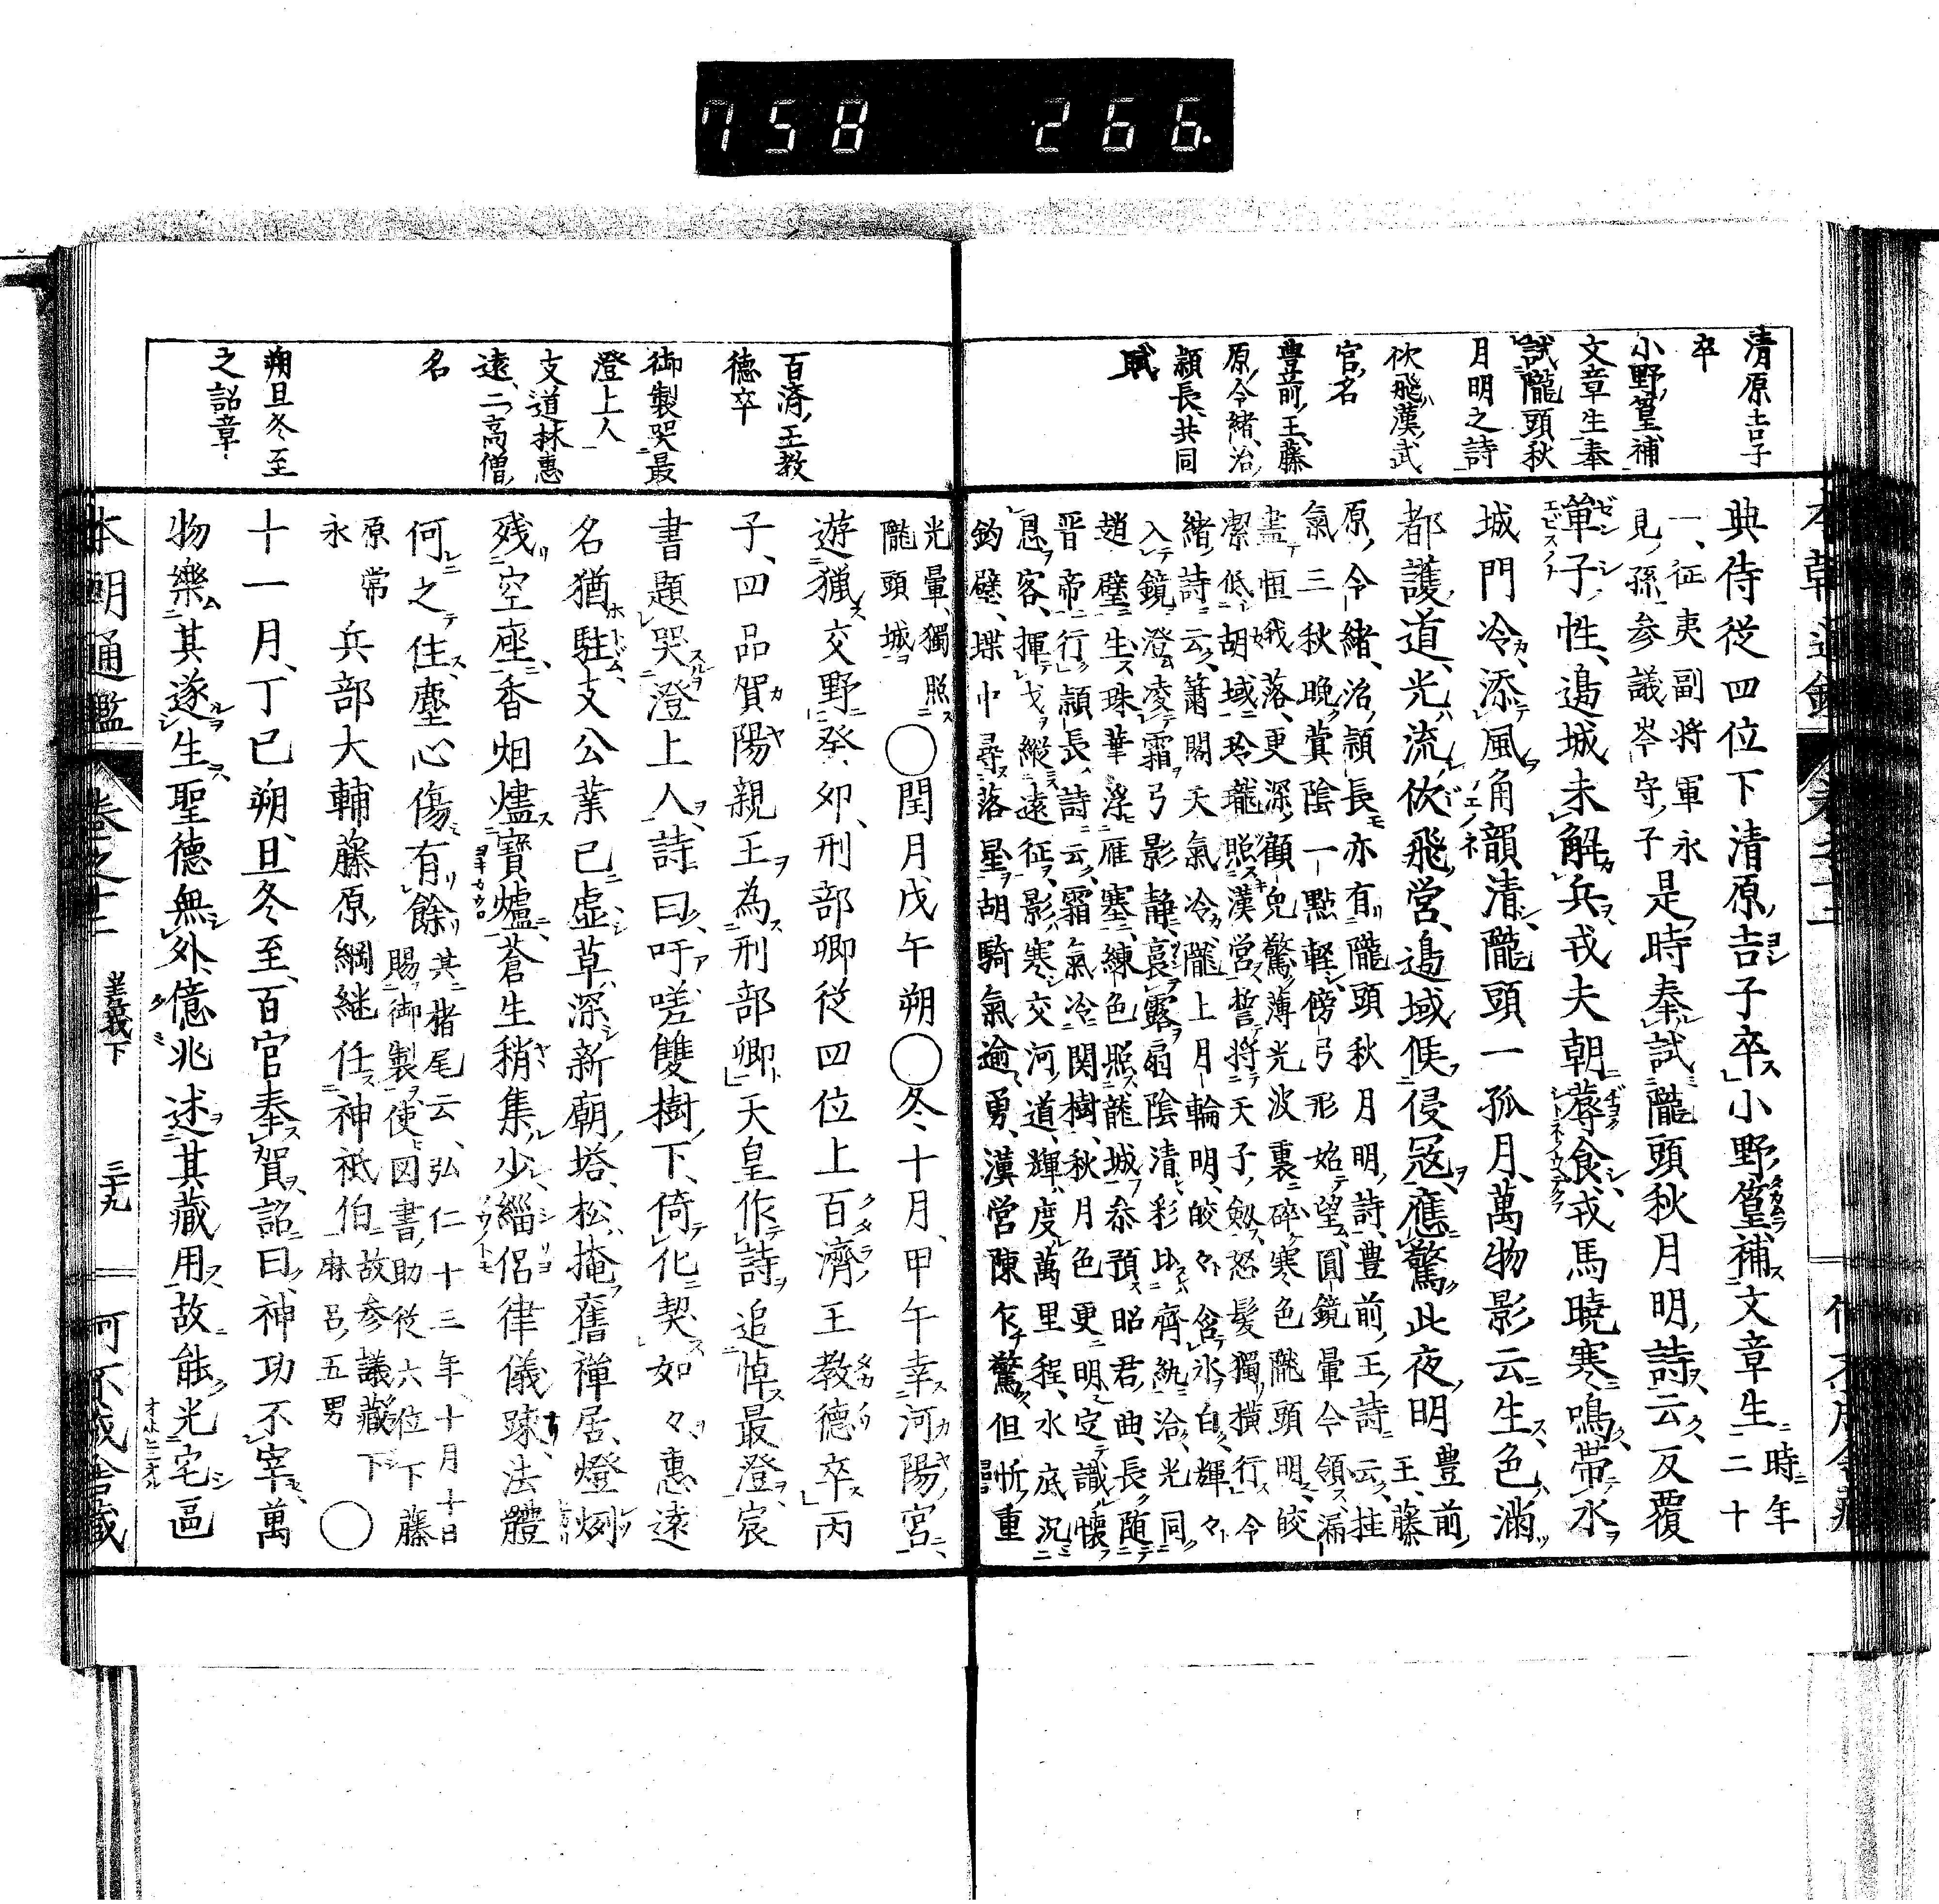 758 266.
清原吉子
卒
小野篁補
文章生奉
試隴頭秋
月明之詩
佽飛漢武
官名
豊前王藤
原令緒治
頴長共同
賦
典侍従四位下清原吉子卒小野篁補文章生時年二十
一征夷副将軍永見孫参議岑守子是時奉試隴頭秋月明詩云反覆
単子性邉城未解兵戎夫朝蓐食戎馬曉寒鳴帶水
城門冷添風角韻清隴頭一孤月萬物影云生色滿
都護道光流佽飛営邉域候侵冦應驚此夜明豊前王藤
原令緒治頴長亦有隴頭秋月明詩豊前王詩云桂
氣三秋晩蓂陰一點軽傍弓形始望圓鏡暈今領漏
盡恒娥落更深顧兎驚薄光波裏碎寒色隴頭明皎
潔低胡域玲瓏照漢営誓将天子剱怒髪獨横行令
緒詩云簫関天氣冷隴上月輪明皎々含氷白輝々
入鏡澄凌霜弓影静裛露扇陰清彩比齊紈洽光同
趙璧生珠華浮雁塞練色照龍城忝預昭君曲長随
晋帝行頴長詩云霜氣冷関樹秋月色更明定識懐
恩客揮戈縦遠征影寒交河道輝度萬里程水底沉
鈎璧堞中尋落星胡騎氣逾勇漢営陳乍驚但忻重
光暈獨照隴頭城〇閏月戊午朔〇冬十月甲午幸河陽宮
遊獵交野癸卯刑部卿従四位上百濟王教德卒丙
子四品賀陽親王為刑部卿天皇作詩追悼最澄宸
書題哭澄上人詩曰吁嗟雙樹下倚化契如々惠遠
名猶駐支公業已虚草深新廟塔松掩舊禅居燈焰
残空座香烟爐寶爐蒼生稍集少緇侶律儀踈法體
何之住塵心傷有餘其楮尾云弘仁十三年十月十日賜御製使図書助従六位下藤
原常永兵部大輔藤原綱継任神祇伯故参議藏下麻呂五男〇
十一月丁巳朔旦冬至百官奉賀詔曰神功不宰萬
物樂其遂生聖德無外億兆述其藏用故能光宅區
百濟王教
德卒
御製哭最
澄上人
支道林惠
遠二高僧
名
朔旦冬至
之詔章
本朝通鑑 巻之十二 嵯峨下 三十九